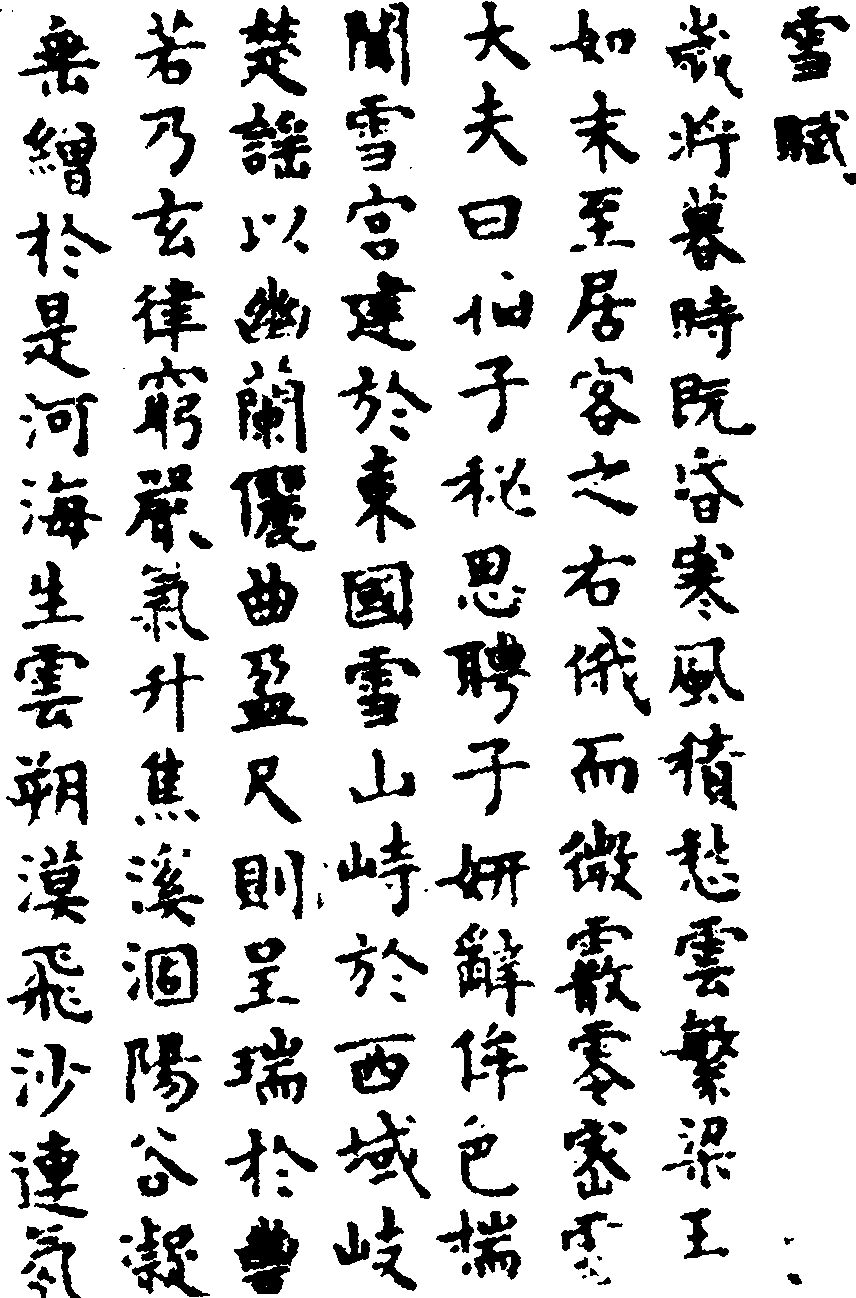 雪賦
歲將暮時既昏寒風積愁雲繁梁王
如末至居客之右俄而微霰零密雪
大夫曰伯子秘思聘子妍辭侔色揣
聞雪宮建於東國雪山峙於西域岐
楚謠以幽蘭儷曲盈尺則呈瑞於豊
若乃玄律窮嚴氣升焦溪涸陽谷凝
垂繒於是河海生雲朔漠飛沙連氛